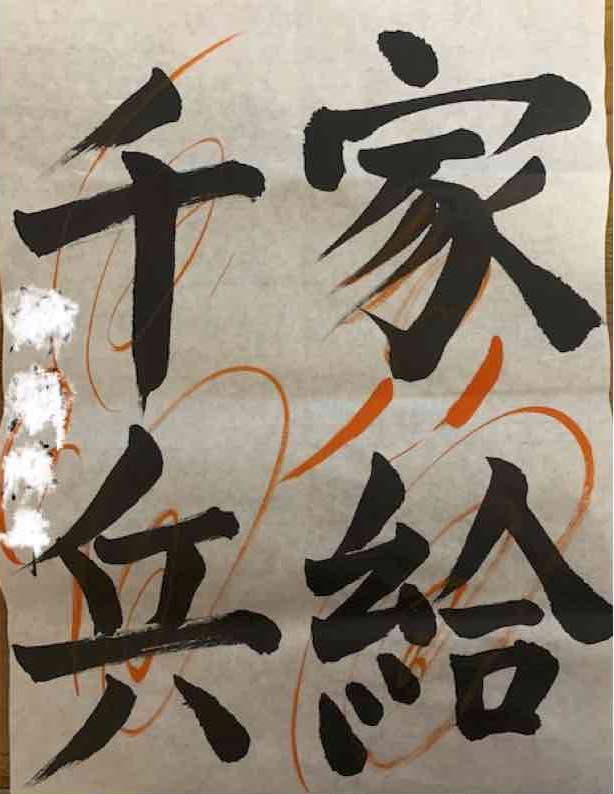 家給
千兵